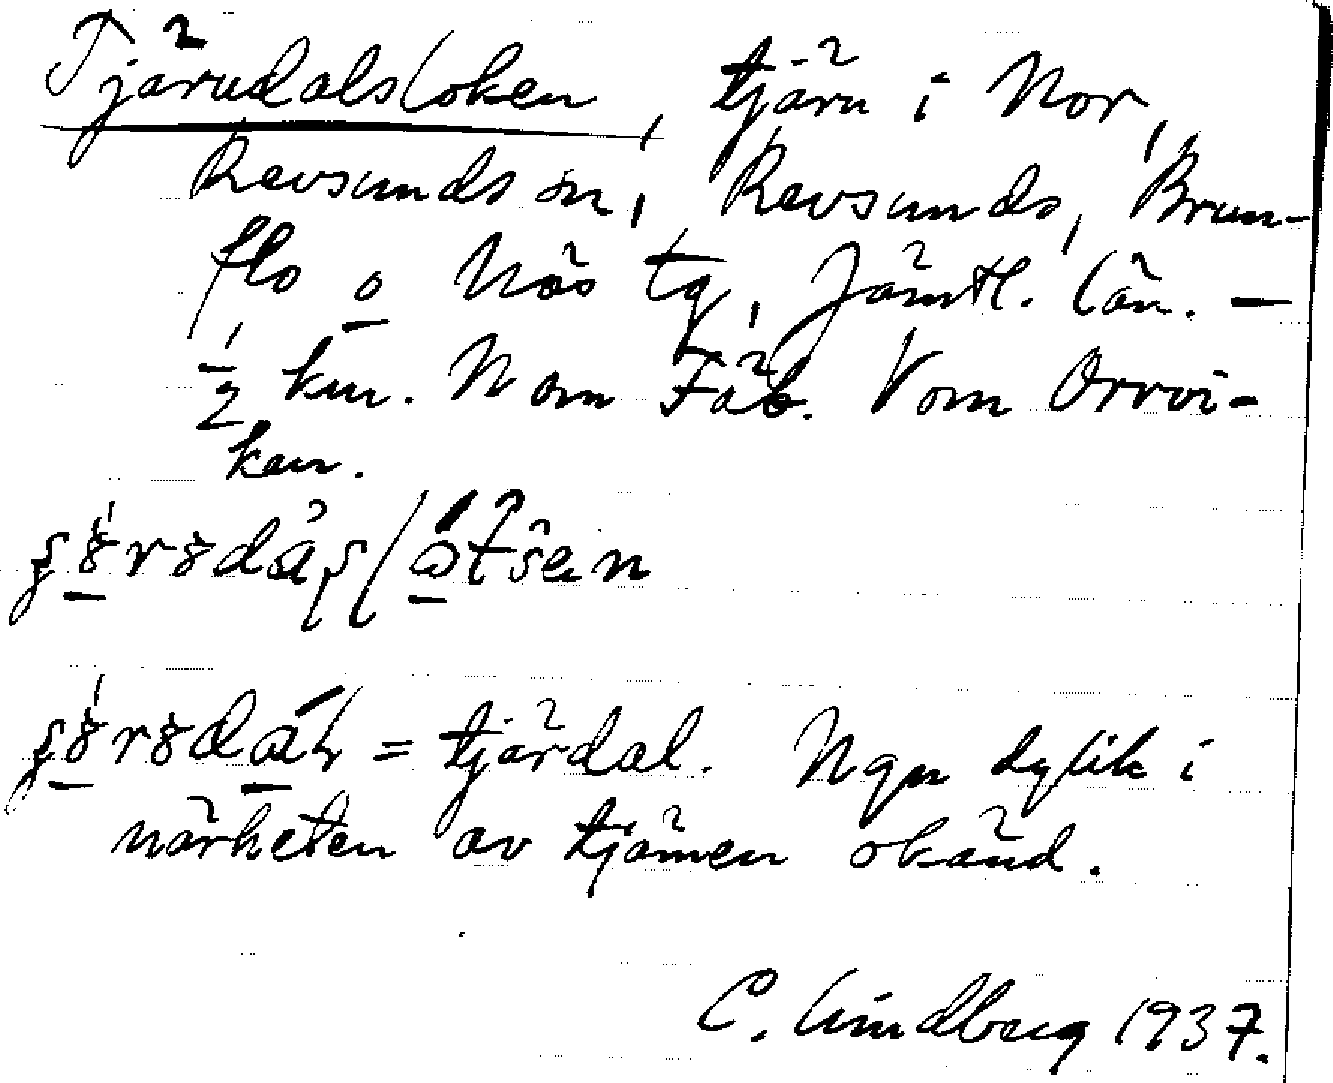 Tjärudalsloken, tjärn i Nor,
Revsunds sn, Revsunds, Brun-
flo o Näs tg, Jämtl. län. —
1/2 km. N om Fäb. V om Orrvi-
ken.
= tjärdal. Ngn dylik i
närheten av tjärnen okänd.
C. Lindberg 1937.